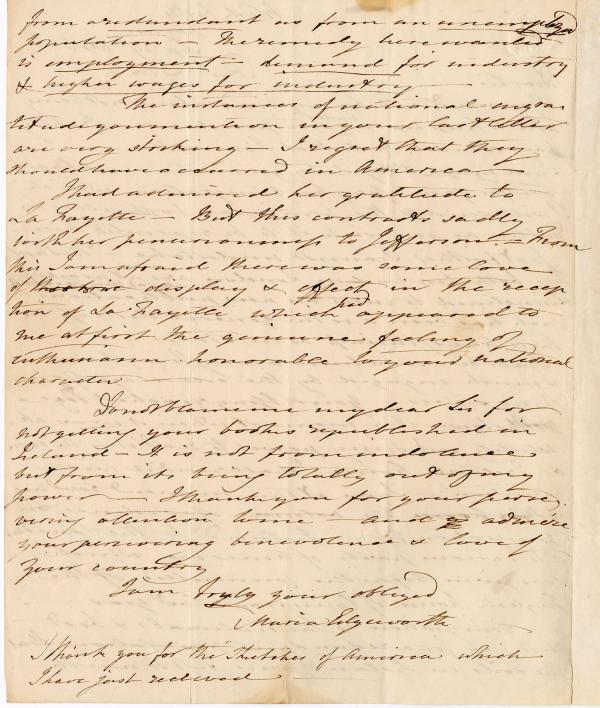 from a redundant as from an unemployed
population – The remedy here wanted
is employment – demand for industry
& higher wages for industry –
The instances of national ingra
titude you mention in your last letter
are very striking – I regret that they
should have occurred in America –
I had admired her gratitude to
La Fayette – But this contrasts sadly
with her penuriousness to Jefferson. – From
this I am afraid there was some love
of display & effect in the recep
tion of La Fayette which had appeared to
me at first the genuine feeling of
enthusiasm honorable to your national
character –
Do not blame me my dear Sir for
not getting your books republished in
Ireland – It is not from indolence
but from its being totally out of my
power – I thank you for your perse
vering attention to me – and admire
your persevering benevolence & love of
your country
I am truly your obliged
Maria Edgeworth
I thank you for the "Sketches of America which
I have just received –